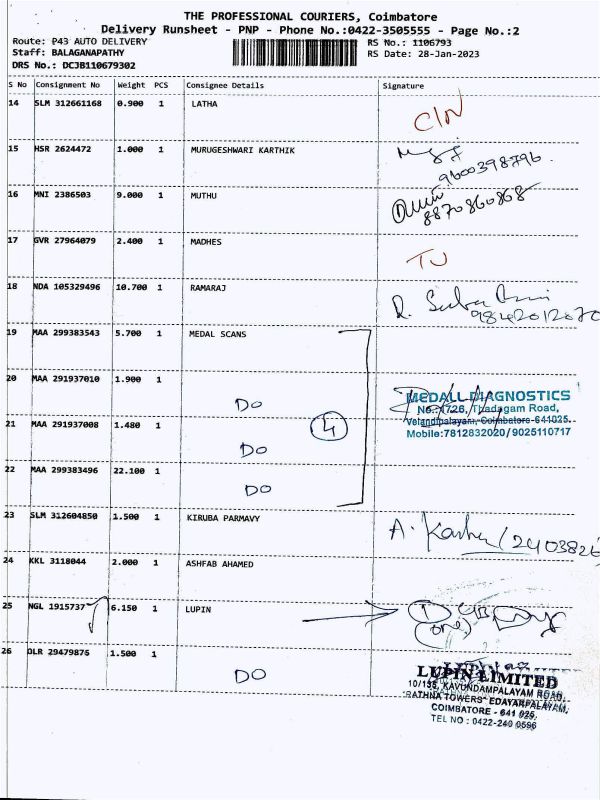 THE PROFESSIONAL COURIERS, Coimbatore
Delivery Runsheet - PNP - Phone No.:0422-3505555 - Page No.:2
Route: P43 AUTO DELIVERY
RS No.: 1106793
Staff: BALAGANAPATHY
RS Date: 28-Jan-2023
DRS No.: DCJB110679302
S No Consignment No Weight PCS Consignee Details Signature
14 SLM 312661168 0.900 1 LATHA CIN
15 HSR 2624472 1.000 1 MURUGESHWARI KARTHIK
9600398796.
16 MNI 2386503 9.000 1 MUTHU
8870860868
17 GVR 27964079 2.400 1 MADHES TJ
18 NDA 105329496 10.700 1 RAMARAJ R.
9842012070
19 MAA 299383543 5.700 1 MEDAL SCANS
20 MAA 291937010 1.900 1 DO
MEDALL DIAGNOSTICS
No.:1726, Thadagam Road,
21 MAA 291937008 1.480 1 DO 4
Velandipalayam, Coimbatore-641025.
Mobile:7812832020/9025110717
22 MAA 299383496 22.100 1 DO
23 SLM 312604850 1.500 1 KIRUBA PARMAVY A.
24 KKL 3118044 2.000 1 ASHFAB AHAMED
25 NGL 1915737 6.150 1 LUPIN
(one)
26 DLR 29479875 1.500 1 DO
LUPIN LIMITED
10/135, KAVUNDAMPALAYAM ROAD,
"RATHNA TOWERS" EDAYARPALAYAM,
COIMBATORE - 641 025.
TEL NO : 0422-240 0596